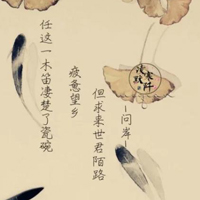 任这一木笛凄楚了瓷碗
疲惫望乡
但求来世君陌路
—问岸—